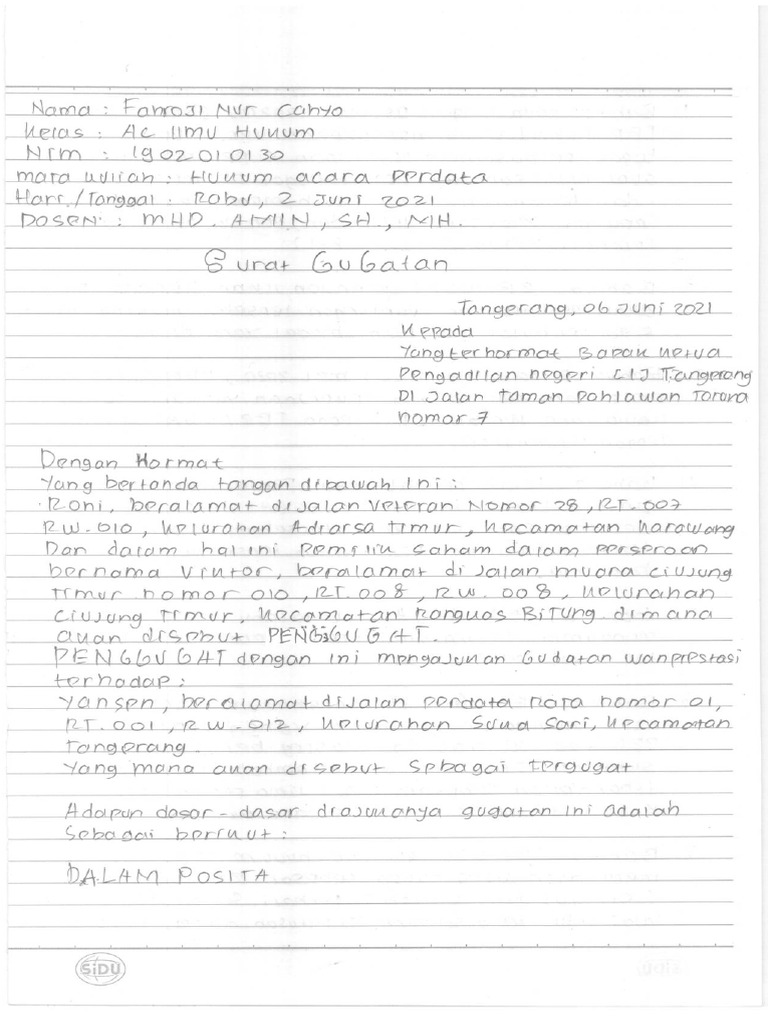 Nama : Fahrozi Nur Cahyo
Kelas : AC Ilmu Hukum
NIM : 1902010130
mata kuliah : Hukum acara perdata
Hari/Tanggal : Rabu, 2 Juni 2021
DOSEN : MHD. AMIN, SH., MH.
Surat GuGatan
Tangerang, 06 Juni 2021
Kepada
Yang terhormat Bapak Ketua
Pengadilan negeri Tangerang
Di Jalan taman Pahlawan Taruna
nomor 7
Dengan Hormat
Yang bertanda tangan dibawah ini :
Roni, beralamat di Jalan Veteran Nomor 28, RT.007
RW.010, Kelurahan Adiarsa Timur, Kecamatan Karawang
Dan dalam hal ini Pemilik saham dalam perseroan
bernama Viktor, beralamat di Jalan muara Ciujung
Timur nomor 010, RT.008, RW.008, Kelurahan
Ciujung Timur, Kecamatan Rangkas Bitung. dimana
akan disebut PENGGUGAT.
PENGGUGAT dengan ini mengajukan Gudatan wanprestasi
terhadap :
Yansen, beralamat di Jalan perdata Raya nomor 01,
RT.001, RW.012, Kelurahan Suka Sari, Kecamatan
Tangerang.
Yang mana akan disebut sebagai tergugat
Adapun dasar-dasar diajukanya gugatan ini adalah
Sebagai berikut :
DALAM POSITA
SiDU